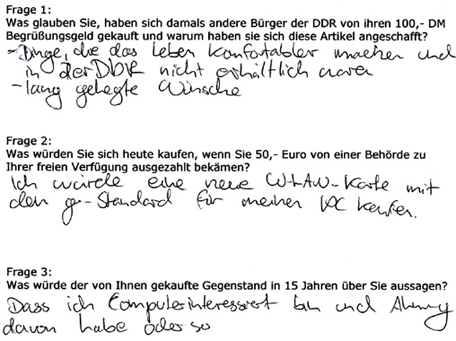 Frage 1:
Was glauben Sie, haben sich damals andere Bürger der DDR von ihren 100,- DM
Begrüßungsgeld gekauft und warum haben sie sich diese Artikel angeschafft?
- Dinge, die das Leben komfortabler machen und
in der DDR nicht erhältlich waren
- lang gehegte Wünsche
Frage 2:
Was würden Sie sich heute kaufen, wenn Sie 50,- Euro von einer Behörde zu
Ihrer freien Verfügung ausgezahlt bekämen?
Ich würde eine neue WLAN-Karte mit
den g-Standard für meinen PC kaufen.
Frage 3:
Was würde der von Ihnen gekaufte Gegenstand in 15 Jahren über Sie aussagen?
Dass ich Computerinteressiert bin und Ahnung
davon habe oder so